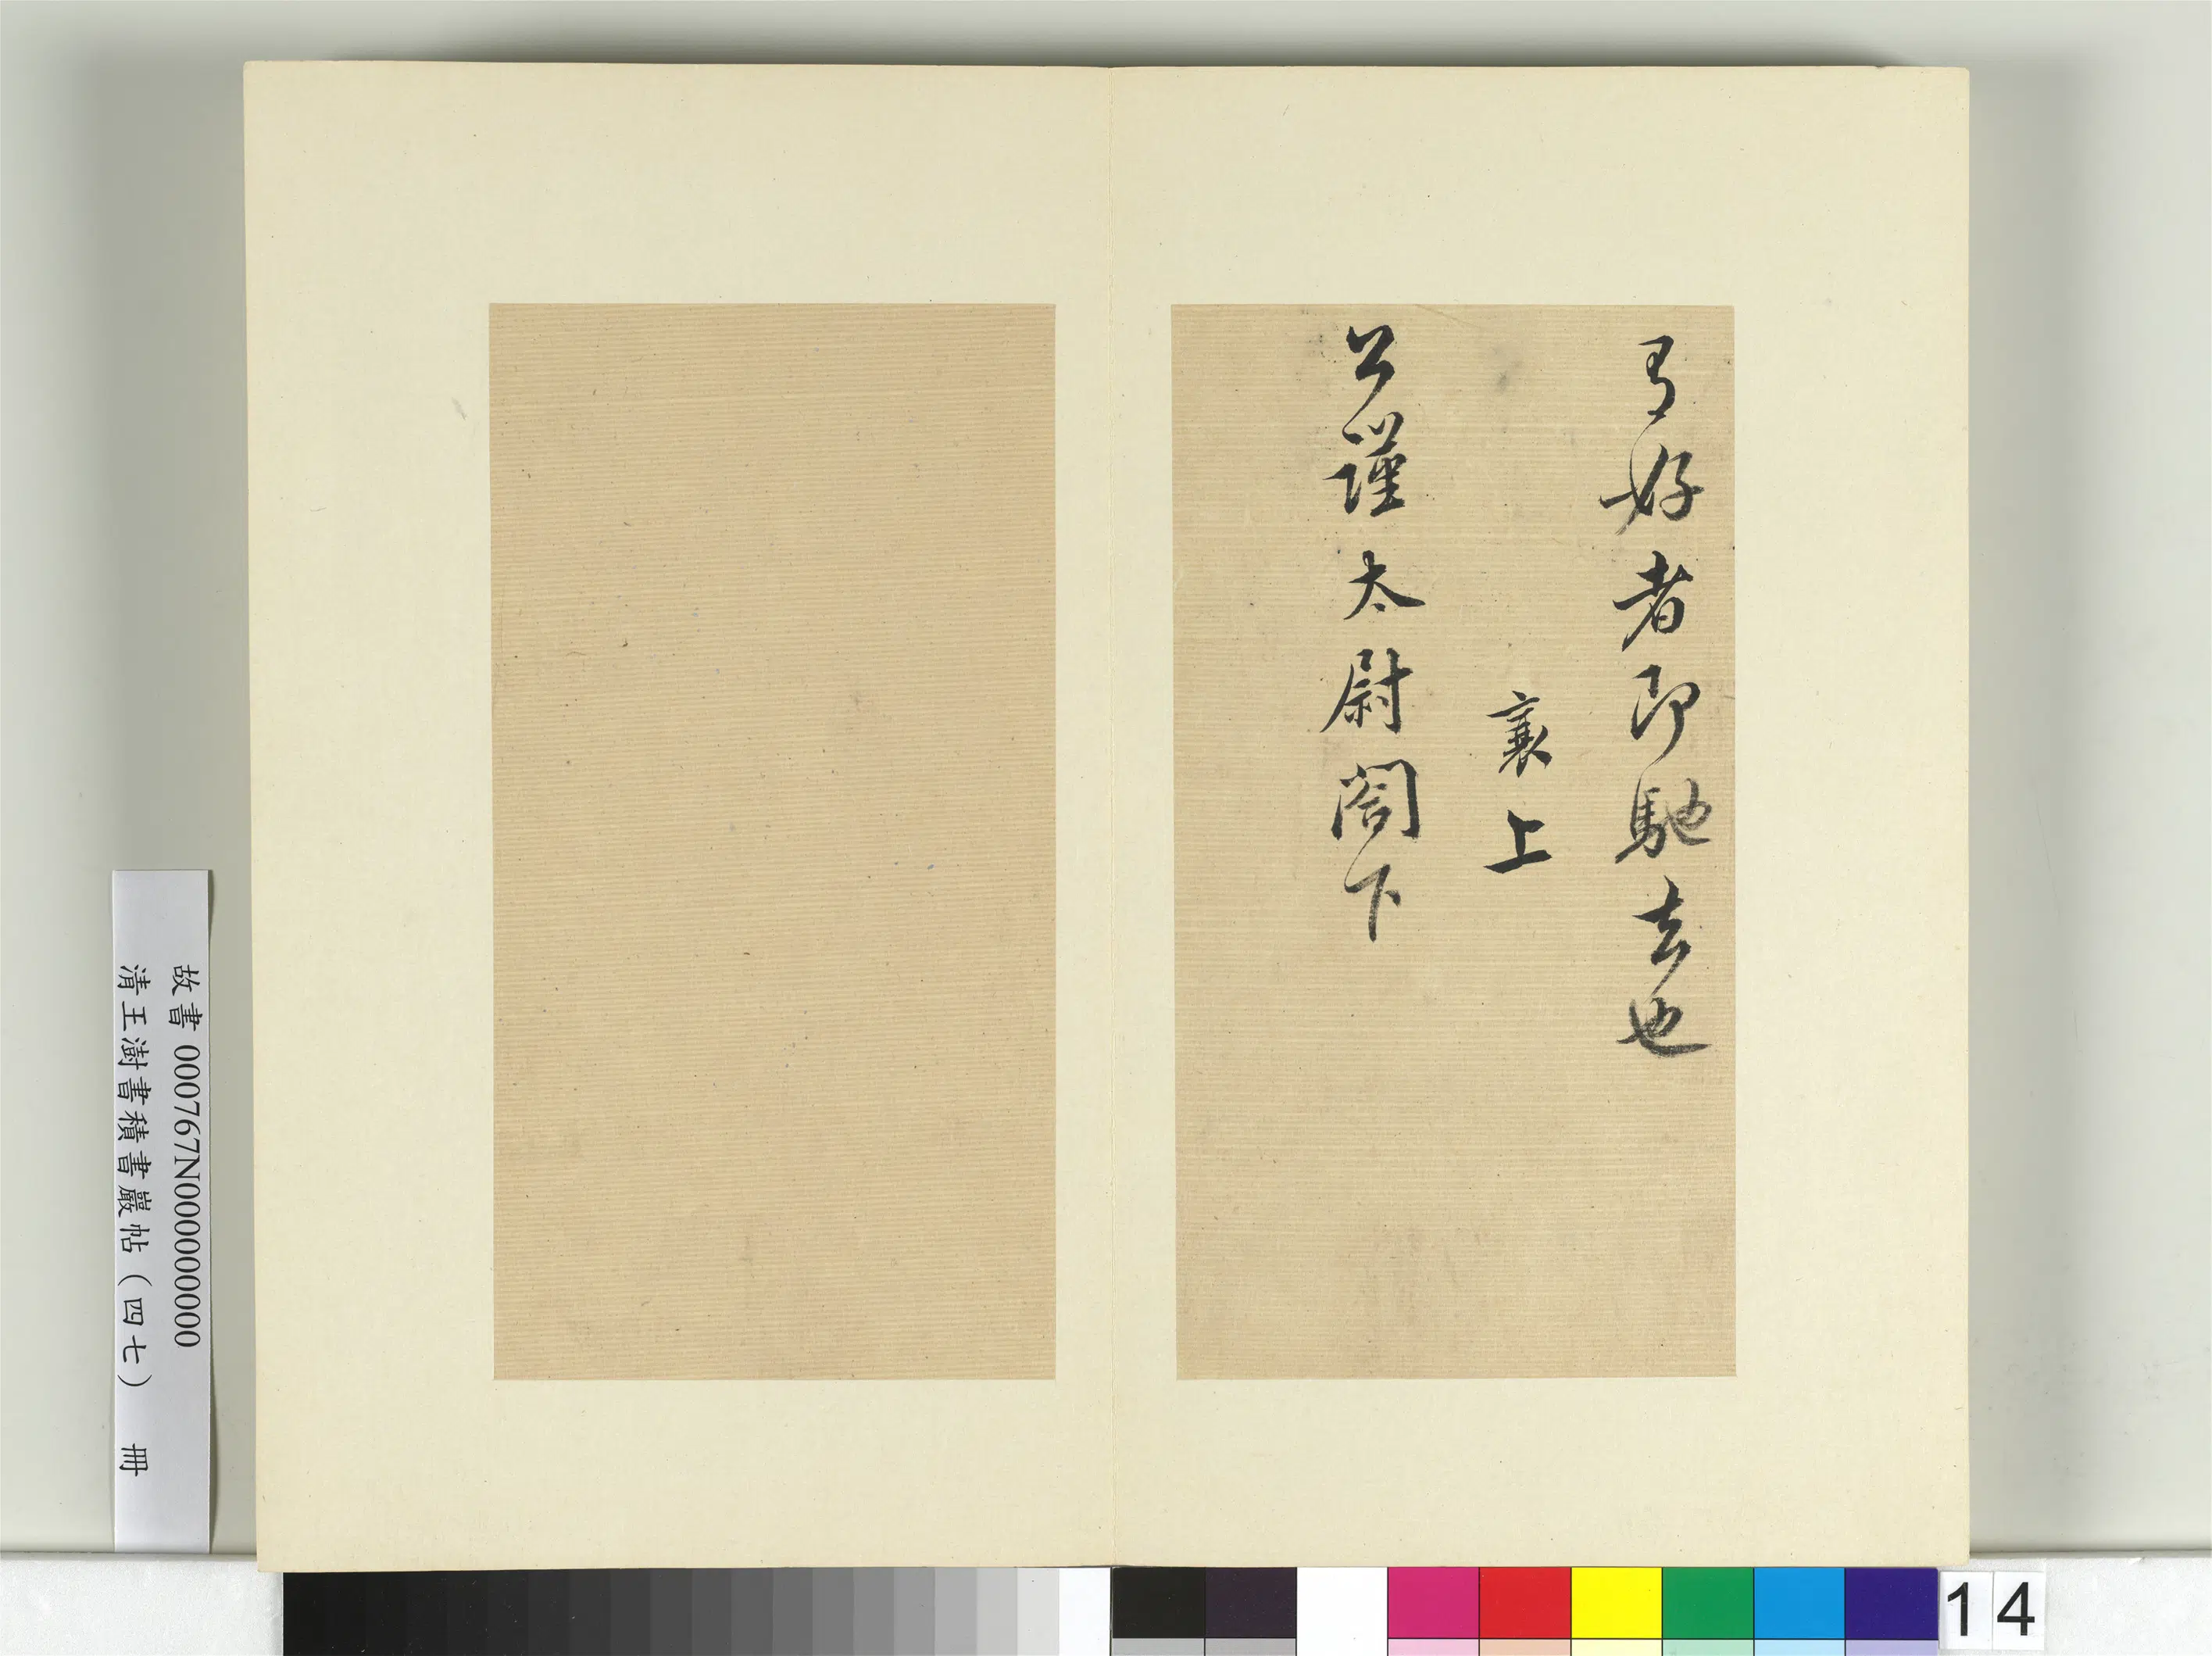 有好者即馳去也
襄上
公謹太尉閤下
故書 000767N000000000
清王澍書積書巖帖（四七） 冊
14